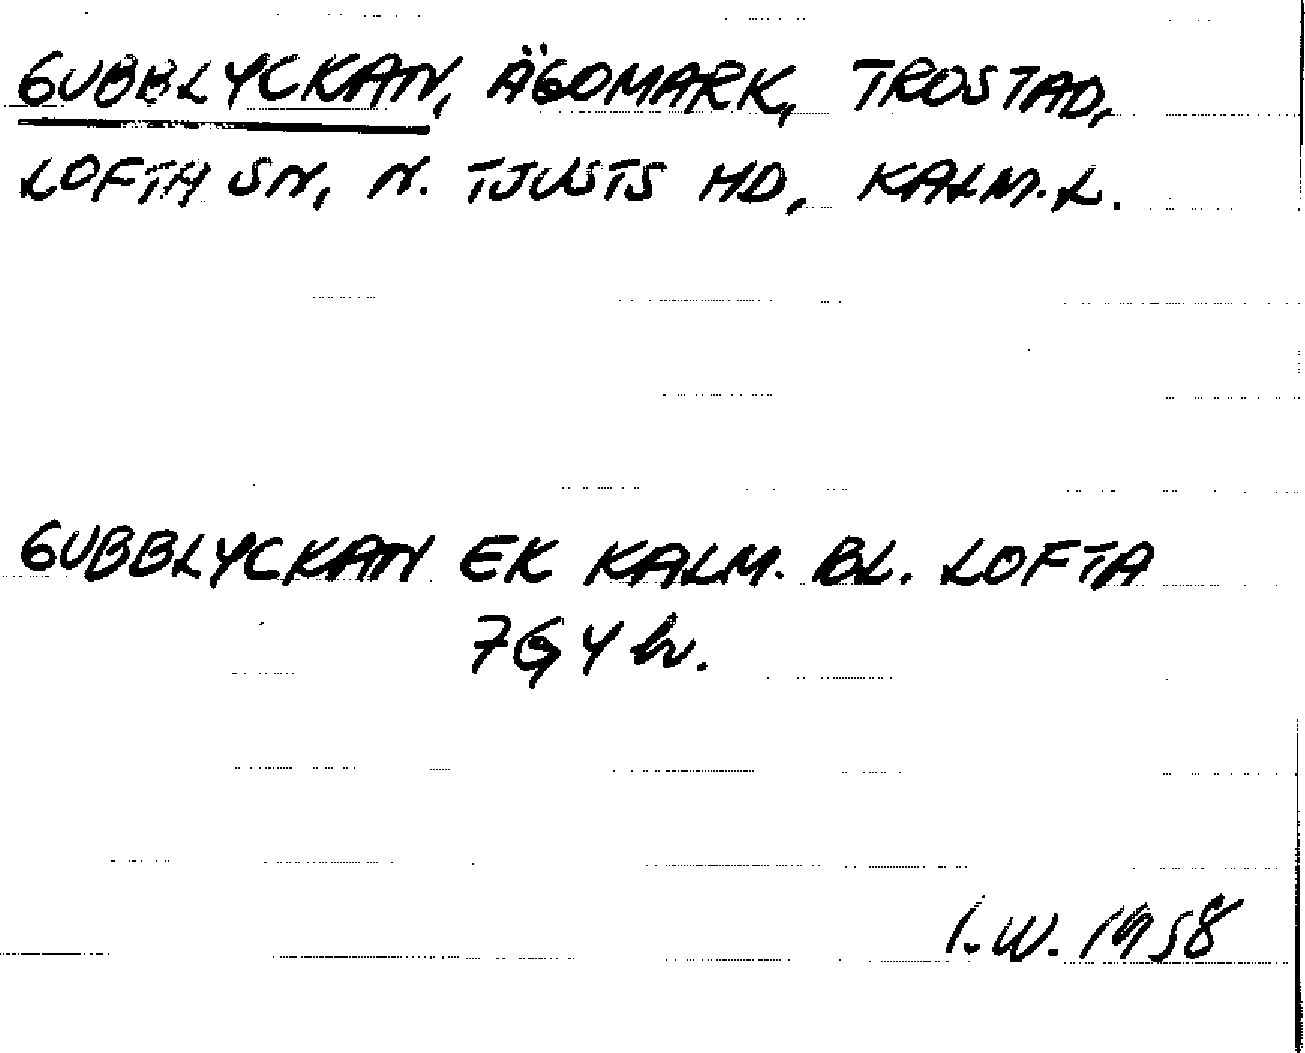 GUBBLYCKAN, ÄGOMARK, TROSTAD,
LOFTA SN, N. TJUSTS HD, KALM.L.
GUBBLYCKAN EK KALM. BL. LOFTA
I.W. 1958